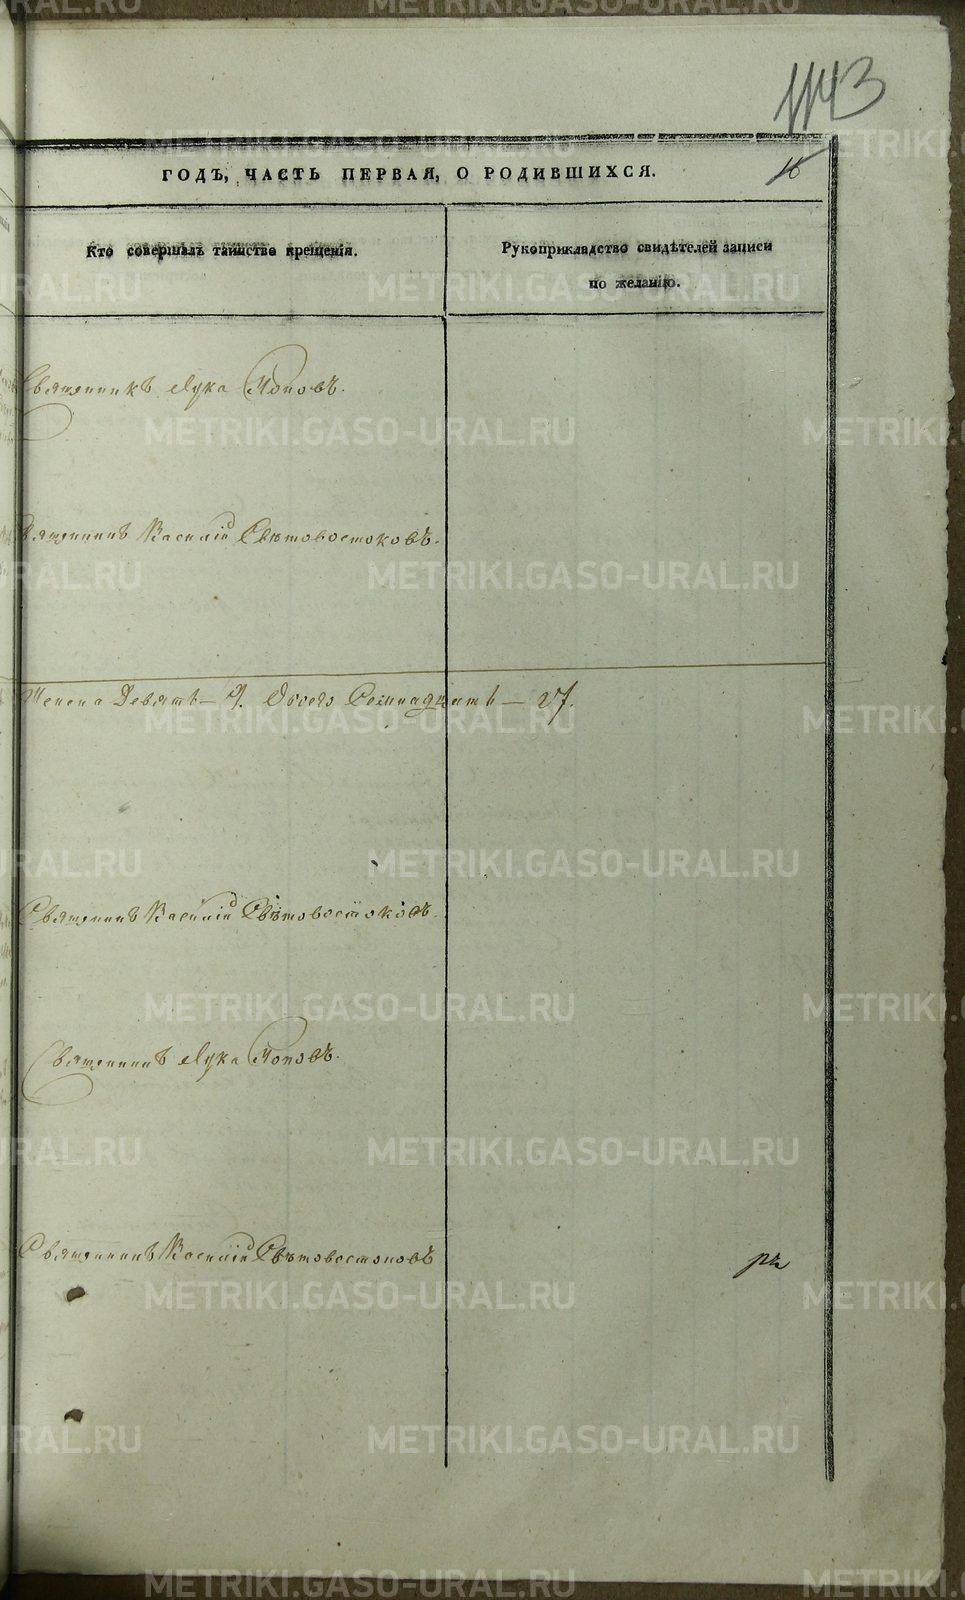 1143
ГОДЪ, ЧАСТЬ ПЕРВАЯ, О РОДИВШИХСЯ.
16
Кто совершалъ таинство крещенія.
Рукоприкладство свидѣтелей записи
по желанію.
Священникъ Лука Поповъ.
Священникъ Василій Свѣтовостоковъ.
Женска Девять — 9. Обоего Семнадцать — 17.
Священникъ Василій Свѣтовостоковъ.
Священникъ Лука Поповъ.
Священникъ Василій Свѣтовостоковъ
METRIKI.GASO-URAL.RU